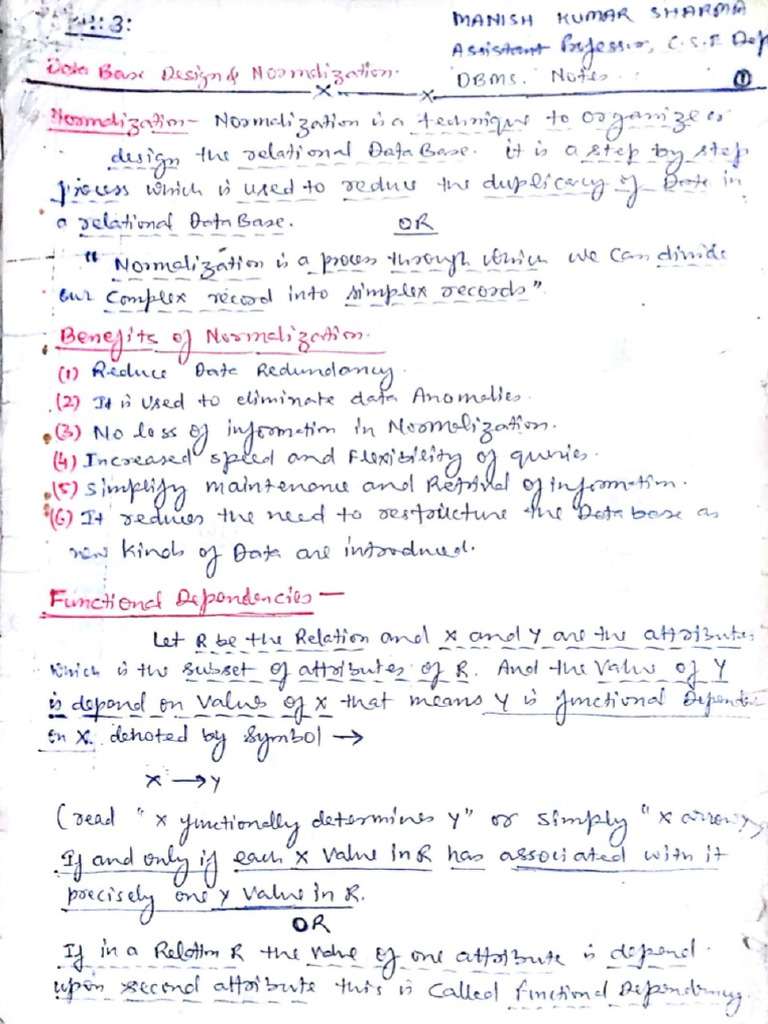 3:
MANISH KUMAR SHARMA
Assistant Professor, C.S.E Dep
Data Base Design & Normalization.
DBMS. Notes.
1
Normalization- Normalization is a technique to organize or
design the relational DataBase. it is a step by step
process which is used to reduce the duplicacy of Data in
a relational DataBase.
OR
" Normalization is a process through which we can divide
our complex record into simplex records".
Benefits of Normalization.
(1) Reduce Data Redundancy.
(2) It is used to eliminate data Anomalies.
(3) No loss of information in Normalization.
(4) Increased speed and Flexibility of queries.
(5) Simplify maintenance and Retrival of information.
(6) It reduces the need to restructure the Data base as
new kinds of Data are introduced.
Functional Dependencies -
Let R be the Relation and X and Y are the attributes
which is the subset of attributes of R. And the Value of Y
is depend on Values of X that means Y is functional Dependent
on X. denoted by Symbol →
X → Y
(read " X functionally determines Y" or simply "X arrow Y
If and only if each X value in R has associated with it
precisely one Y Value in R.
OR
If in a Relation R the value of one attribute is depend
upon second attribute this is called functional Dependency.